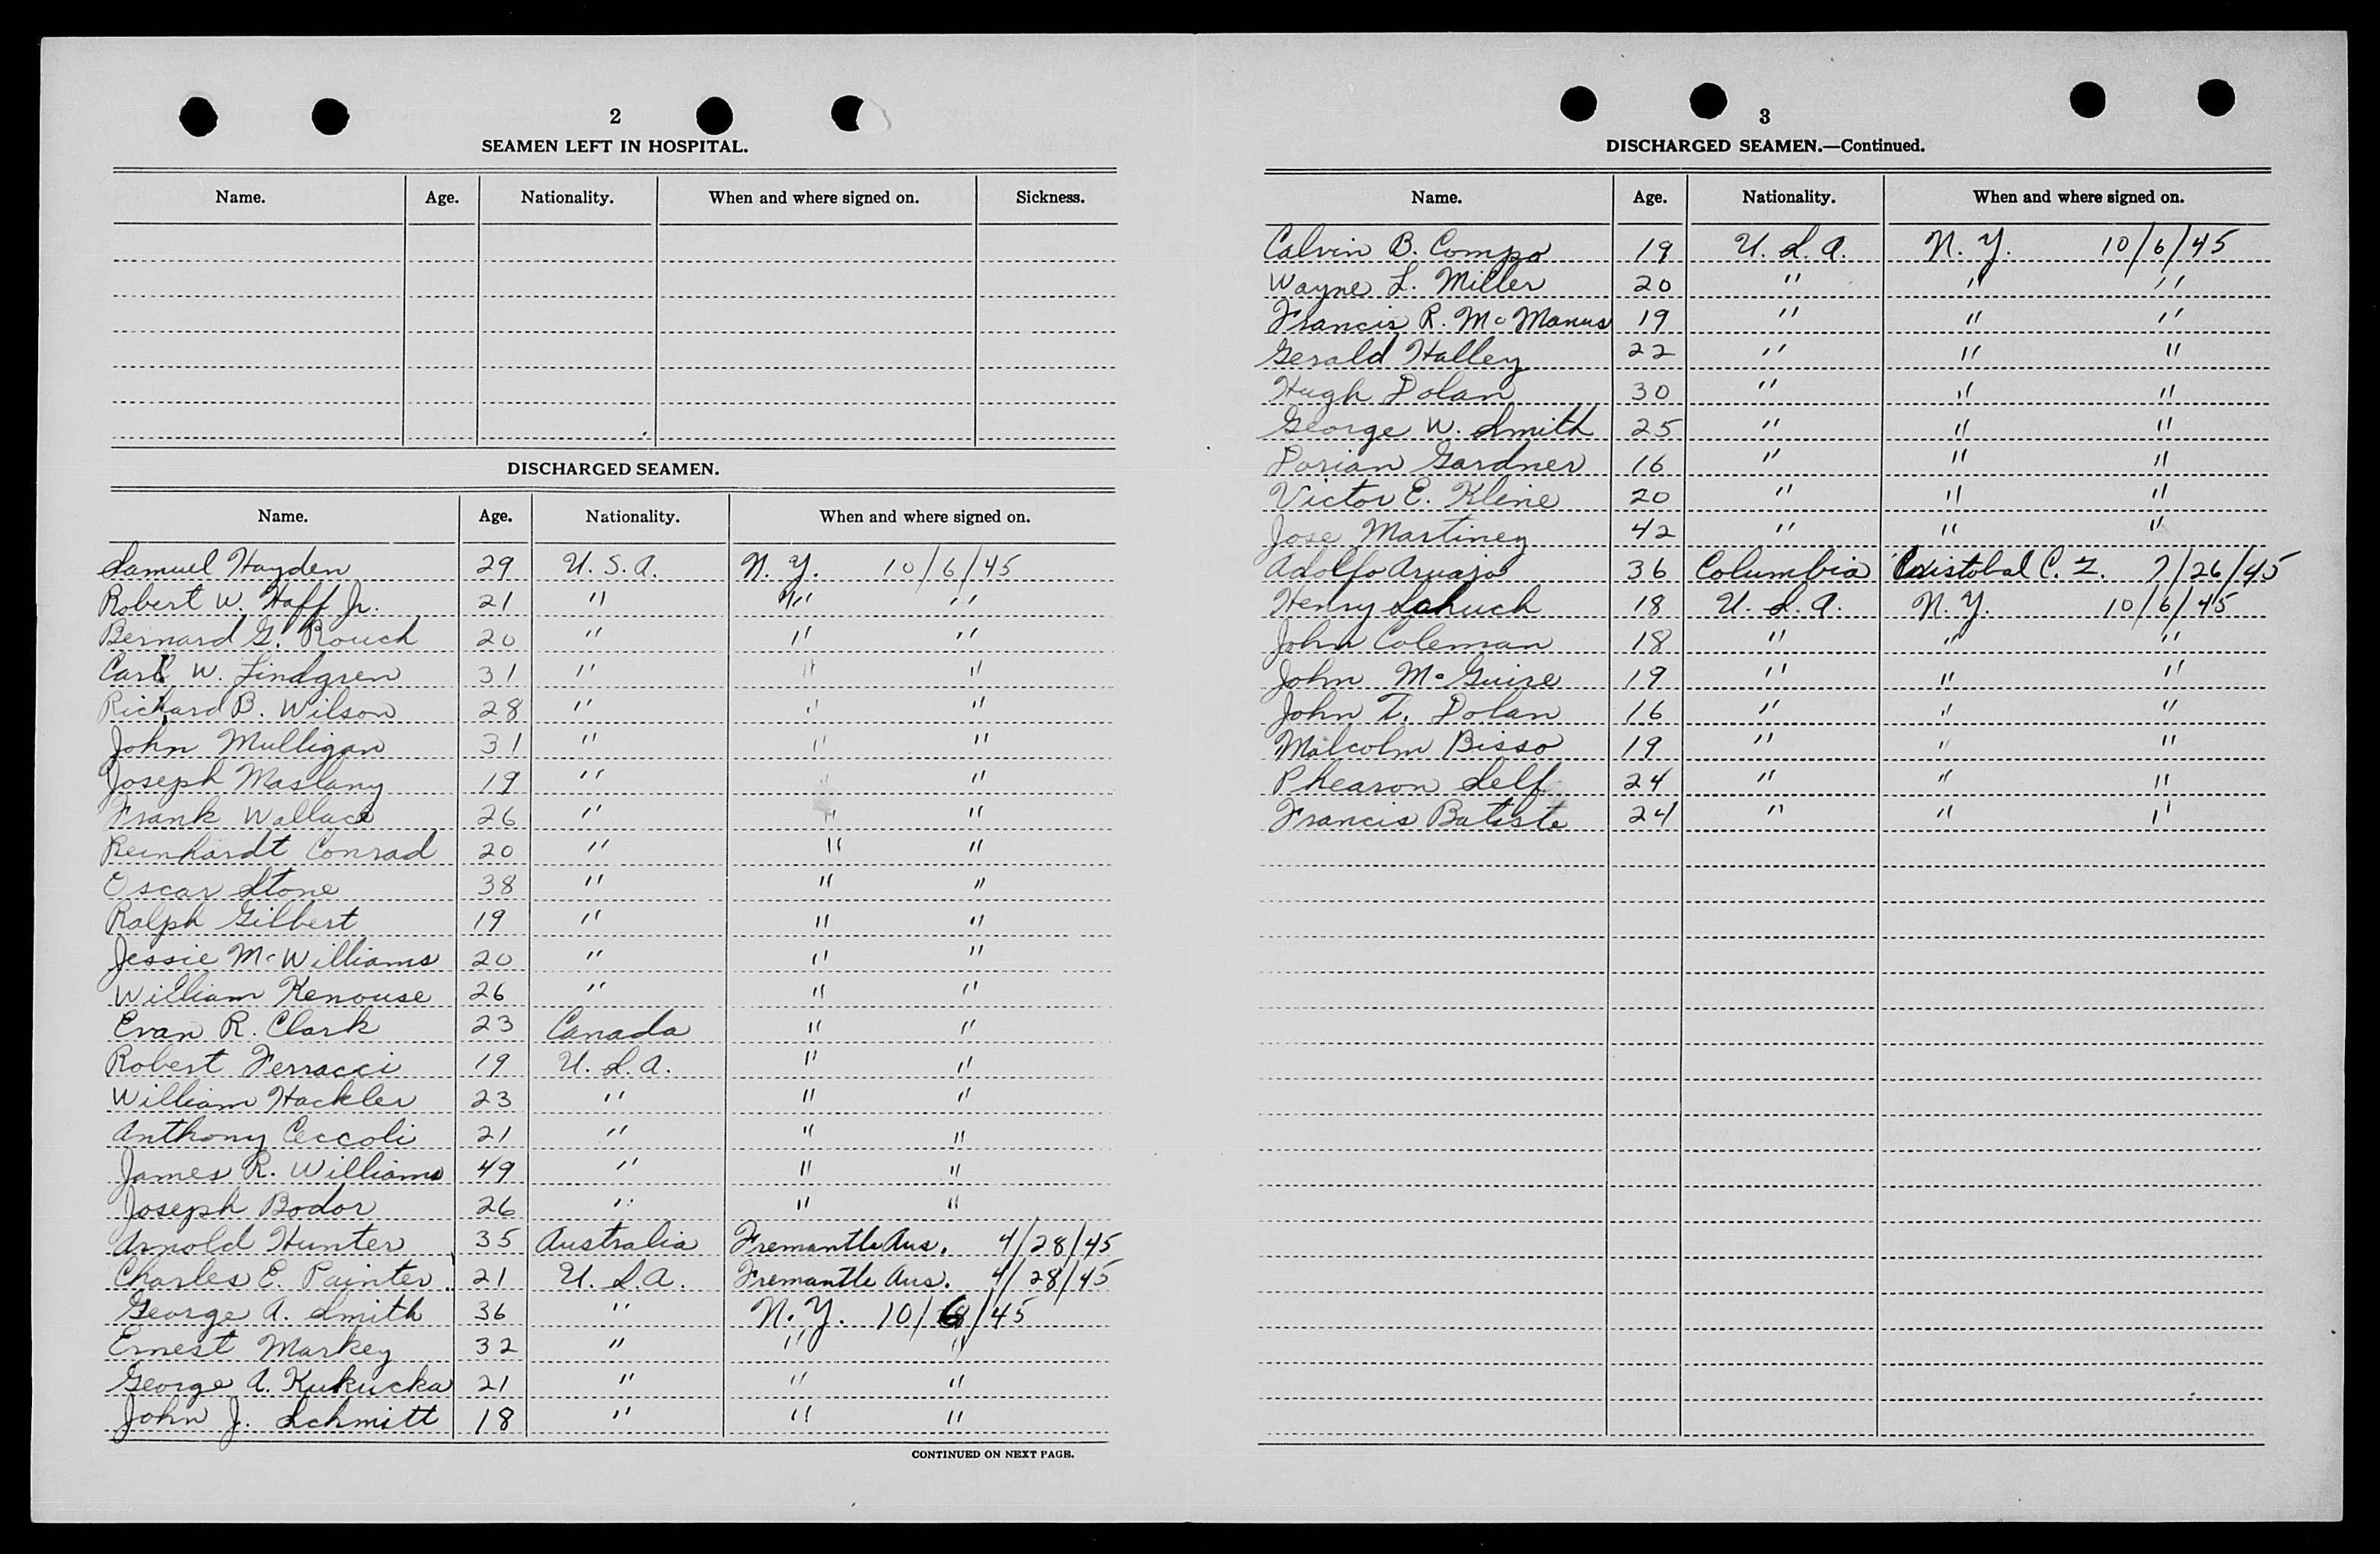 2
SEAMEN LEFT IN HOSPITAL.
Name. Age. Nationality. When and where signed on. Sickness.
DISCHARGED SEAMEN.
Name. Age. Nationality. When and where signed on.
Samuel Hayden 29 U.S.A. N.Y. 10/6/45
Robert W. Haff Jr. 21 " " "
Bernard G. Rouch 20 " " "
Carl W. Lindgren 31 " " "
Richard B. Wilson 28 " " "
John Mulligan 31 " " "
Joseph Maslany 19 " " "
Frank Wallace 26 " " "
Reinhardt Conrad 20 " " "
Oscar Stone 38 " " "
Ralph Gilbert 19 " " "
Jessie McWilliams 20 " " "
William Kenouse 26 " " "
Evan R. Clark 23 Canada " "
Robert Ferracci 19 U.S.A. " "
William Hackler 23 " " "
Anthony Ceccoli 21 " " "
James R. Williams 49 " " "
Joseph Bodor 26 " " "
Arnold Hunter 35 Australia Fremantle Aus. 4/28/45
Charles E. Painter 21 U.S.A. Fremantle Aus. 4/28/45
George A. Smith 36 " N.Y. 10/6/45
Ernest Markey 32 " " "
George A. Kukucka 21 " " "
John J. Schmitt 18 " " "
CONTINUED ON NEXT PAGE.
3
DISCHARGED SEAMEN.—Continued.
Name. Age. Nationality. When and where signed on.
Calvin B. Compo 19 U.S.A. N.Y. 10/6/45
Wayne L. Miller 20 " " "
Francis R. McManus 19 " " "
Gerald Halley 22 " " "
Hugh Dolan 30 " " "
George W. Smith 25 " " "
Dorian Gardner 16 " " "
Victor E. Kline 20 " " "
Jose Martinez 42 " " "
Adolfo Aruajo 36 Columbia Cristobal C.Z. 7/26/45
Henry Sahuch 18 U.S.A. N.Y. 10/6/45
John Coleman 18 " " "
John McGuire 19 " " "
John T. Dolan 16 " " "
Malcolm Bisso 19 " " "
Phearon Self 24 " " "
Francis Batiste 24 " " "